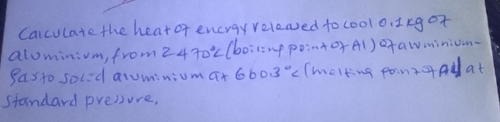 Calculate the heat of energy released to cool 0.1kg of
aluminium, from 2470°C (boiling point of Al) of aluminium-
gas to solid aluminium at 660.3°C (melting point of Al) at
standard pressure.